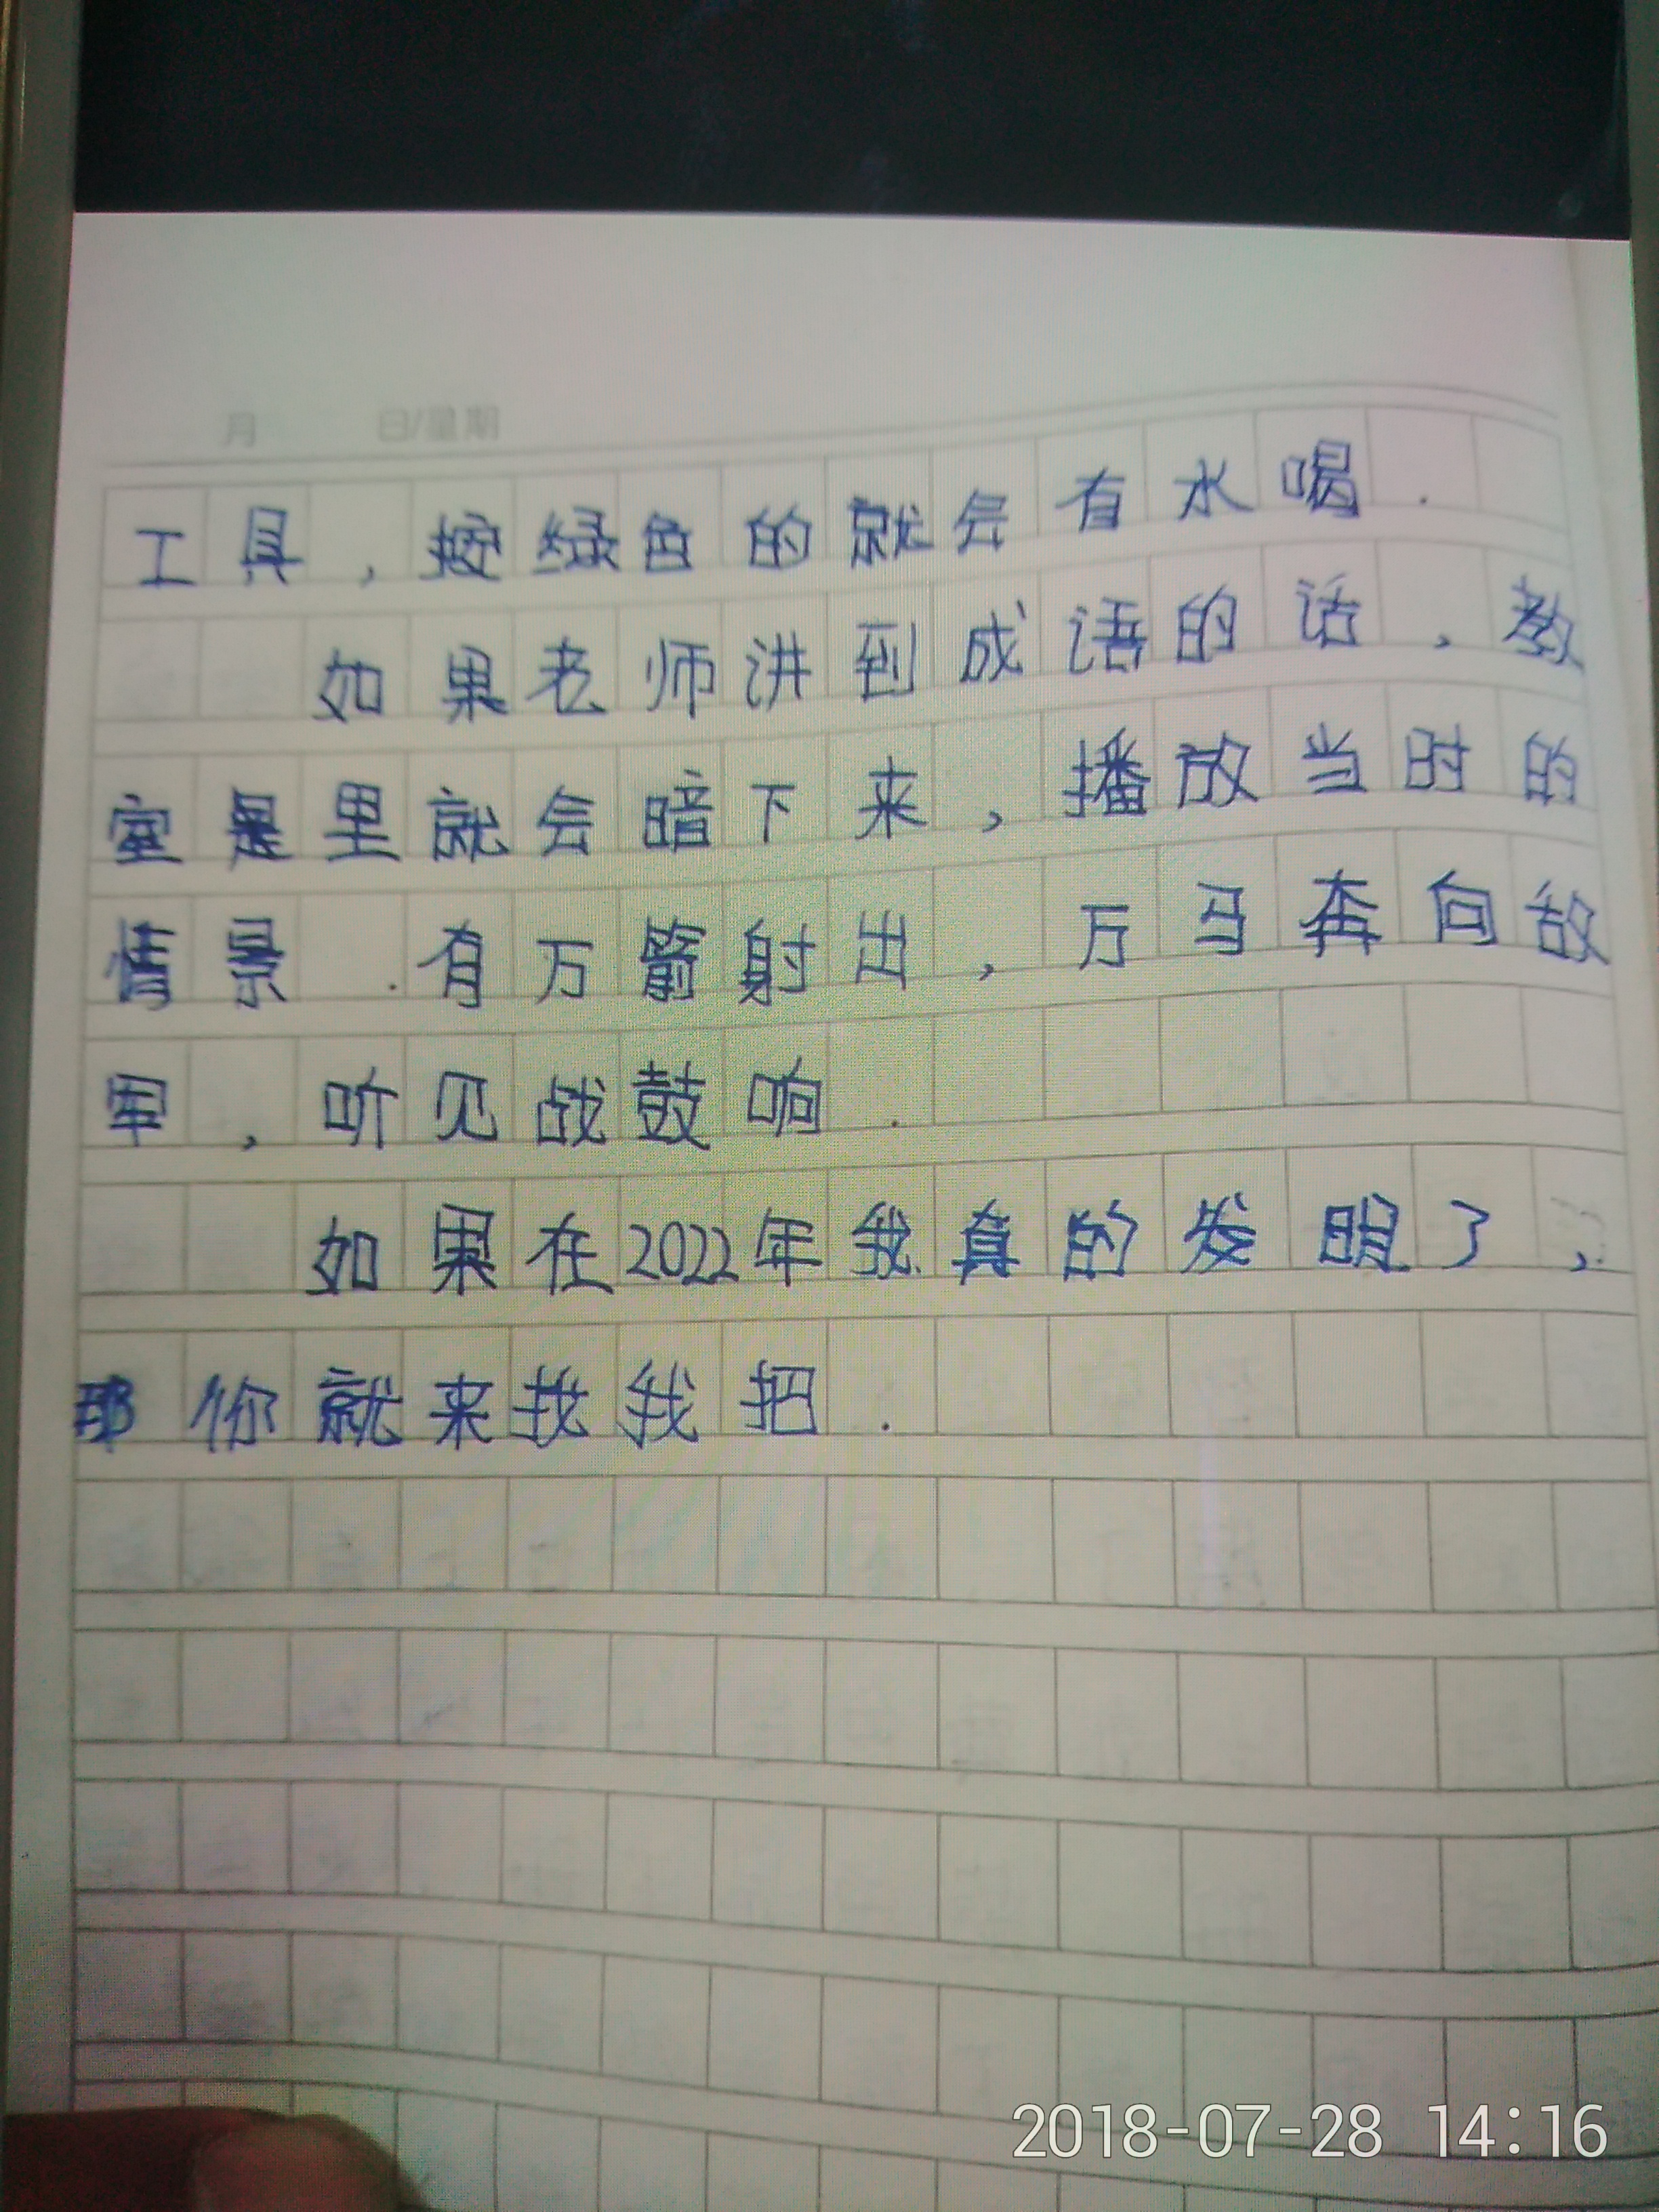 月 日/星期
工具,按绿色的就会有水喝.
如果老师讲到成语的话,教
室是里就会暗下来,播放当时的
情景.有万箭射出,万马奔向敌
军,听见战鼓响.
如果在2022年我真的发明了,
那你就来找我把.
2018-07-28 14:16